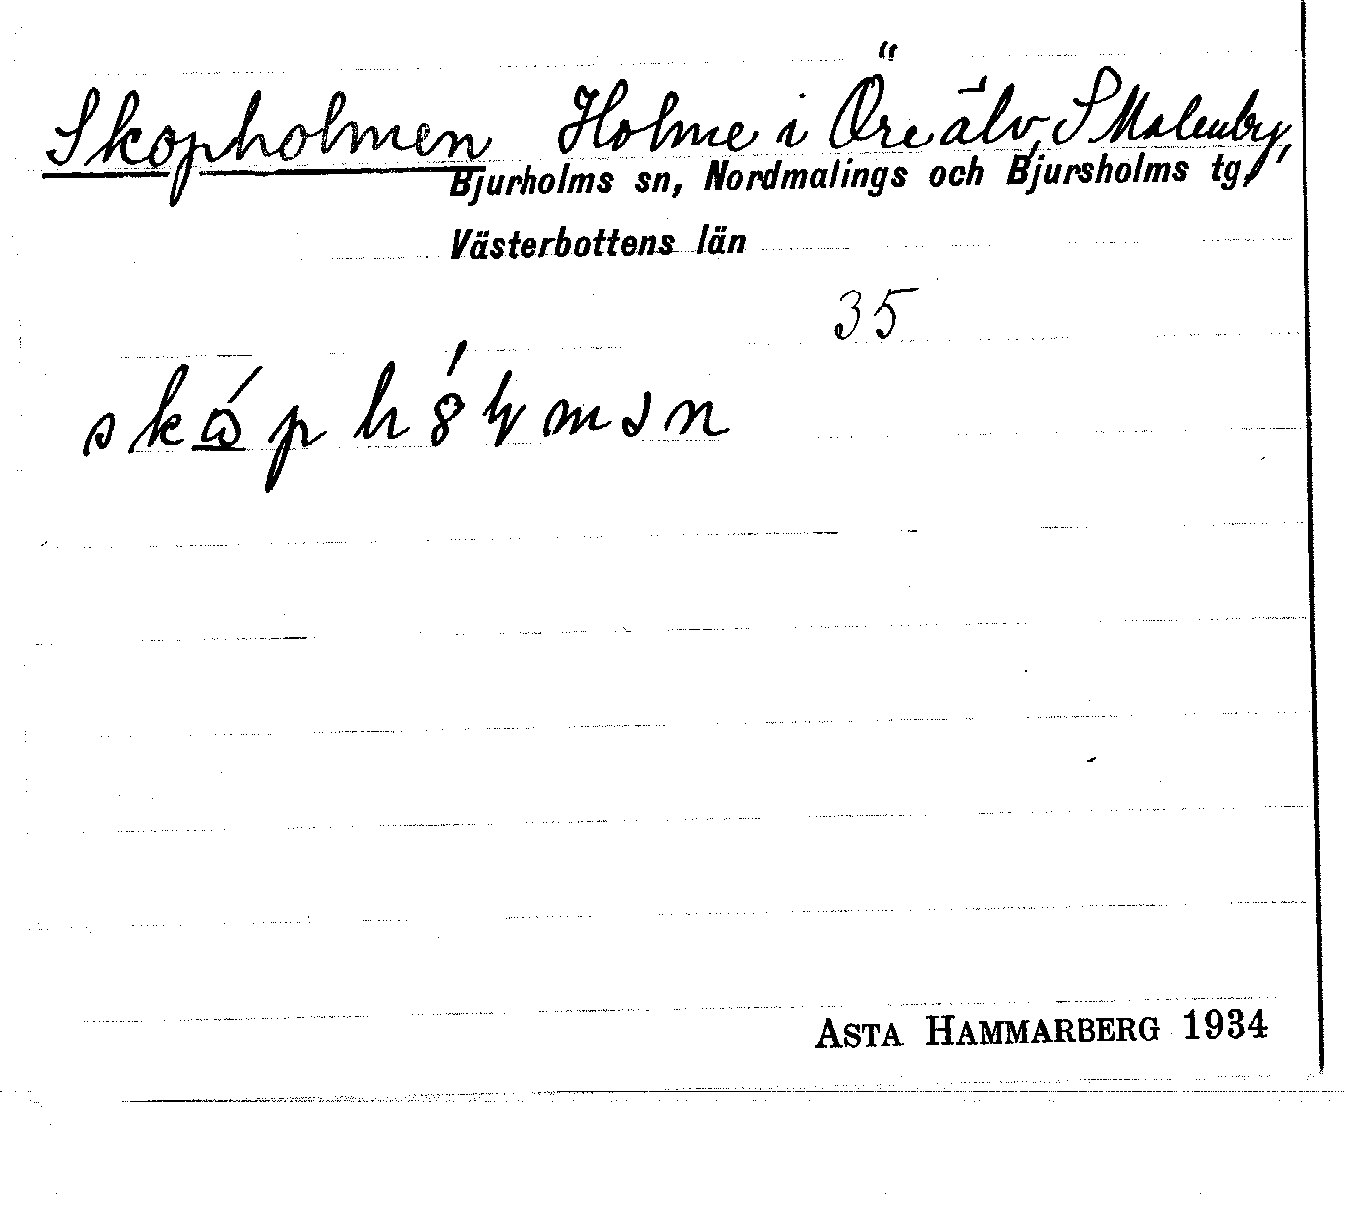 Skopholmen Holme i Öre älv, S Malenby,
Bjurholms sn, Nordmalings och Bjursholms tg,
Västerbottens län
35
ASTA HAMMARBERG 1934